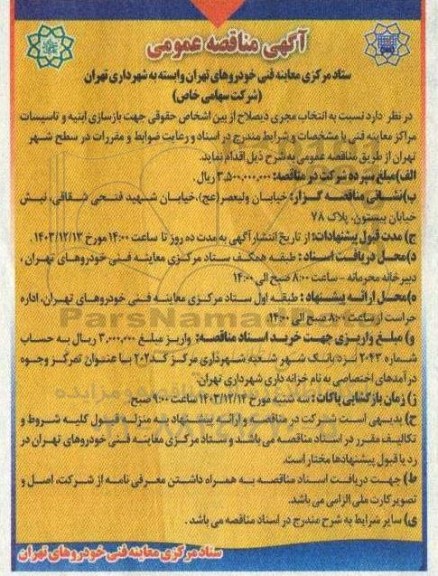 آگهی مناقصه عمومی
ستاد مرکزی معاینه فنی خودروهای تهران وابسته به شهرداری تهران
(شرکت سهامی خاص)
در نظر دارد نسبت به انتخاب مجری ذیصلاح از بین اشخاص حقوقی جهت بازسازی ابنیه و تاسیسات
مراکز معاینه فنی با مشخصات و شرایط مندرج در اسناد و رعایت ضوابط و مقررات در سطح شهر
تهران از طریق مناقصه عمومی به شرح ذیل اقدام نماید.
الف) مبلغ سپرده شرکت در مناقصه: ۳،۵۰۰،۰۰۰،۰۰۰ ریال.
ب) نشانی مناقصه گزار: خیابان ولیعصر(عج)، خیابان شهید فتحی شقاقی، نبش
خیابان بیستون، پلاک ۷۸
ج) مدت قبول پیشنهادات: از تاریخ انتشار آگهی به مدت ده روز تا ساعت ۱۴:۰۰ مورخ ۱۴۰۳/۱۲/۱۳.
د) محل دریافت اسناد: طبقه همکف ستاد مرکزی معاینه فنی خودروهای تهران،
دبیرخانه محرمانه - ساعت ۸:۰۰ صبح الی ۱۴:۰۰
ه) محل ارائه پیشنهاد: طبقه اول ستاد مرکزی معاینه فنی خودروهای تهران، اداره
حراست از ساعت ۸:۰۰ صبح الی ۱۴:۰۰.
و) مبلغ واریزی جهت خرید اسناد مناقصه: واریز مبلغ ۳،۰۰۰،۰۰۰ ریال به حساب
شماره ۲۰۴۳ نزد بانک شهر شعبه شهرداری مرکز کد ۲۰۲ با عنوان تمرکز وجوه
درآمدهای اختصاصی به نام خزانه داری شهرداری تهران.
ز) زمان بازگشایی پاکات: سه شنبه مورخ ۱۴۰۳/۱۲/۱۴ ساعت ۹:۰۰ صبح.
ح) بدیهی است شرکت در مناقصه و ارائه پیشنهاد به منزله قبول کلیه شروط و
تکالیف مقرر در اسناد مناقصه می باشد و ستاد مرکزی معاینه فنی خودروهای تهران در
رد یا قبول پیشنهادها مختار است.
ط) جهت دریافت اسناد مناقصه به همراه داشتن معرفی نامه از شرکت، اصل و
تصویر کارت ملی الزامی می باشد.
ی) سایر شرایط به شرح مندرج در اسناد مناقصه می باشد.
ستاد مرکزی معاینه فنی خودروهای تهران